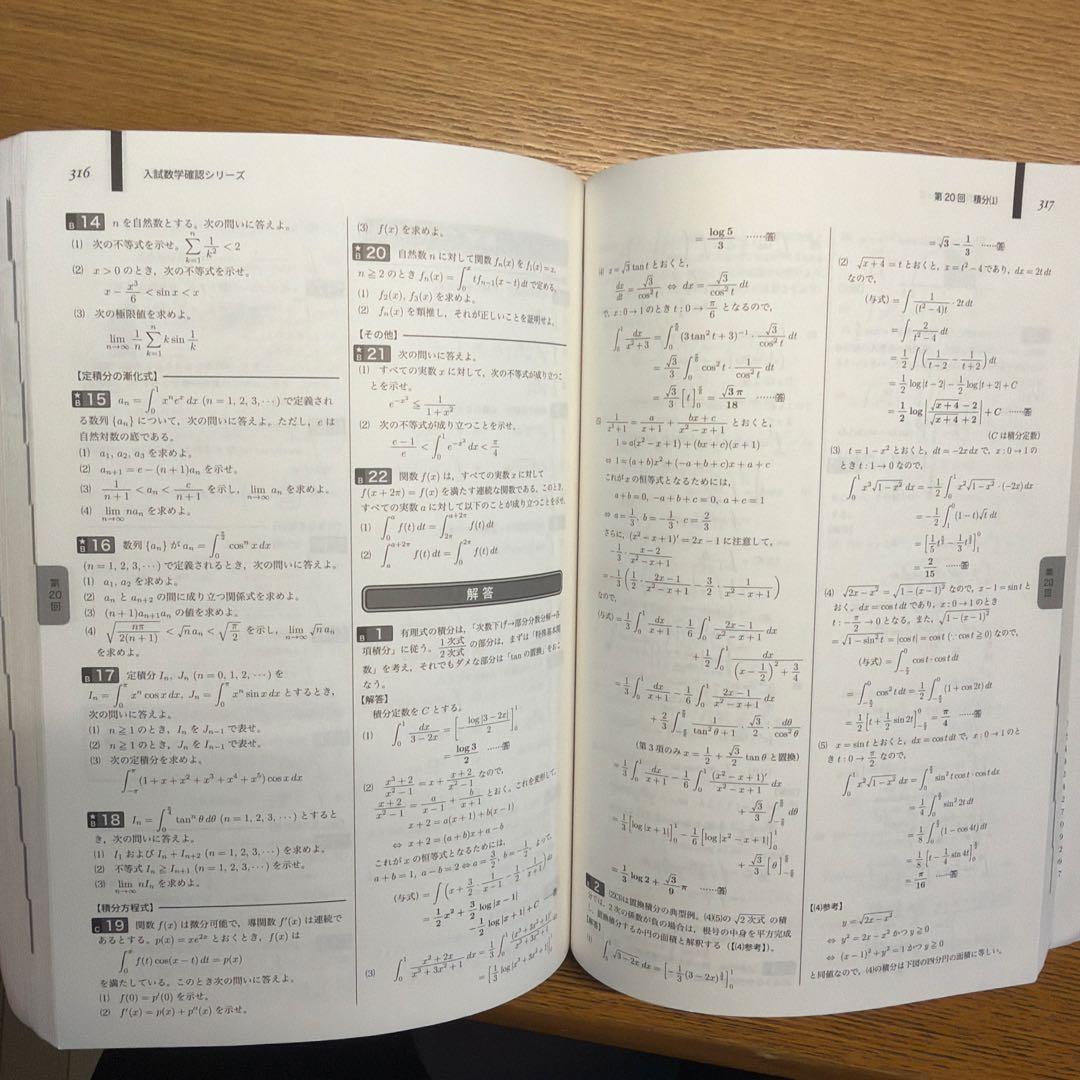 316
入試数学確認シリーズ
B 14 nを自然数とする。次の問いに答えよ。
(1) 次の不等式を示せ。\sum_{k=1}^{n} \frac{1}{k^2} < 2
(2) x > 0 のとき、次の不等式を示せ。
x - \frac{x^3}{6} < sin x < x
(3) 次の極限値を求めよ。
\lim_{n→∞} \frac{1}{n} \sum_{k=1}^{n} k sin \frac{1}{k}
【定積分の漸化式】
★B 15 a_n = \int_0^1 x^n e^x dx (n = 1, 2, 3, …) で定義され
る数列 {a_n} について、次の問いに答えよ。ただし、eは
自然対数の底である。
(1) a_1, a_2, a_3 を求めよ。
(2) a_{n+1} = e - (n+1)a_n を示せ。
(3) \frac{1}{n+1} < a_n < \frac{e}{n+1} を示し、\lim_{n→∞} a_n を求めよ。
(4) \lim_{n→∞} na_n を求めよ。
★B 16 数列 {a_n} が a_n = \int_0^{\frac{π}{2}} cos^n x dx
(n = 1, 2, 3, …) で定義されるとき、次の問いに答えよ。
(1) a_1, a_2 を求めよ。
(2) a_n と a_{n+2} の間に成り立つ関係式を求めよ。
(3) (n+1)a_{n+1}a_n の値を求めよ。
(4) \sqrt{\frac{nπ}{2(n+1)}} < \sqrt{n} a_n < \sqrt{\frac{π}{2}} を示し、\lim_{n→∞} \sqrt{n} a_n を
求めよ。
B 17 定積分 I_n, J_n (n = 0, 1, 2, …) を
I_n = \int_0^π x^n cos x dx, J_n = \int_0^π x^n sin x dx とするとき、
次の問いに答えよ。
(1) n ≧ 1 のとき、I_n を J_{n-1} で表せ。
(2) n ≧ 1 のとき、J_n を I_{n-1} で表せ。
(3) 次の定積分を求めよ。
\int_{-π}^{π} (1 + x + x^2 + x^3 + x^4 + x^5) cos x dx
★B 18 I_n = \int_0^{\frac{π}{4}} tan^n θ dθ (n = 1, 2, 3, …) とすると
き、次の問いに答えよ。
(1) I_1 および I_n + I_{n+2} (n = 1, 2, 3, …) を求めよ。
(2) 不等式 I_n ≧ I_{n+1} (n = 1, 2, 3, …) を示せ。
(3) \lim_{n→∞} nI_n を求めよ。
【積分方程式】
C 19 関数 f(x) は微分可能で、導関数 f'(x) は連続で
あるとする。p(x) = xe^{2x} とおくとき、f(x) は
\int_0^x f(t) cos(x - t) dt = p(x)
を満たしている。このとき次の問いに答えよ。
(1) f(0) = p'(0) を示せ。
(2) f'(x) = p(x) + p''(x) を示せ。
第20回
(3) f(x) を求めよ。
★B 20 自然数 n に対して関数 f_n(x) を f_1(x) = x,
n ≧ 2 のとき f_n(x) = \int_0^x tf_{n-1}(x - t) dt で定める。
(1) f_2(x), f_3(x) を求めよ。
(2) f_n(x) を類推し、それが正しいことを証明せよ。
【その他】
★B 21 次の問いに答えよ。
(1) すべての実数 x に対して、次の不等式が成り立つこ
とを示せ。
e^{-x^2} ≦ \frac{1}{1+x^2}
(2) 次の不等式が成り立つことを示せ。
\frac{e-1}{e} < \int_0^1 e^{-x^2} dx < \frac{π}{4}
B 22 関数 f(x) は、すべての実数 x に対して
f(x + 2π) = f(x) を満たす連続な関数である。このとき、
すべての実数 a に対して以下のことが成り立つことを示せ。
(1) \int_0^a f(t) dt = \int_{2π}^{a+2π} f(t) dt
(2) \int_a^{a+2π} f(t) dt = \int_0^{2π} f(t) dt
解答
B 1 有理式の積分は、「次数下げ→部分分数分解→各
項積分」に従う。\frac{1次式}{2次式} の部分は、まずは「特殊基本関
数」を考え、それでもダメな部分は「tanの置換」をおこ
なう。
【解答】
積分定数を C とする。
(1) \int_0^1 \frac{dx}{3-2x} = [-\frac{log|3-2x|}{2}]_0^1
= \frac{log 3}{2} ……答
(2) \frac{x^3+2}{x^2-1} = x + \frac{x+2}{x^2-1} なので、
\frac{x+2}{x^2-1} = \frac{a}{x-1} + \frac{b}{x+1} とおく。これを変形して、
x + 2 = a(x+1) + b(x-1)
⇔ x + 2 = (a+b)x + a - b
これが x の恒等式となるためには、
a + b = 1, a - b = 2 ⇔ a = \frac{3}{2}, b = -\frac{1}{2} よって、
(与式) = \int (x + \frac{3}{2}・\frac{1}{x-1} - \frac{1}{2}・\frac{1}{x+1}) dx
= \frac{1}{2}x^2 + \frac{3}{2} log|x-1|
- \frac{1}{2} log|x+1| + C ……答
(3) \int_0^1 \frac{x^2+2x}{x^3+3x^2+1} dx = \frac{1}{3} \int_0^1
= [\frac{1}{3} log|x^3+3x^2+1|]_0^1
第20回 積分(1)
317
= \frac{log 5}{3} ……答
x = \sqrt{3} tan t とおくと、
\frac{dx}{dt} = \frac{\sqrt{3}}{cos^2 t} ⇔ dx = \frac{\sqrt{3}}{cos^2 t} dt
で、x : 0→1 のとき t : 0→\frac{π}{6} となるので、
\int_0^1 \frac{dx}{x^2+3} = \int_0^{\frac{π}{6}} (3tan^2 t + 3)^{-1}・\frac{\sqrt{3}}{cos^2 t} dt
= \frac{\sqrt{3}}{3} \int_0^{\frac{π}{6}} cos^2 t・\frac{1}{cos^2 t} dt
= \frac{\sqrt{3}}{3} [t]_0^{\frac{π}{6}} = \frac{\sqrt{3}π}{18} ……答
\frac{1}{x^3+1} = \frac{a}{x+1} + \frac{bx+c}{x^2-x+1} とおくと、
1 = a(x^2 - x + 1) + (bx + c)(x + 1)
⇔ 1 = (a+b)x^2 + (-a+b+c)x + a + c
これが x の恒等式となるためには、
a + b = 0, -a + b + c = 0, a + c = 1
⇔ a = \frac{1}{3}, b = -\frac{1}{3}, c = \frac{2}{3}
さらに、(x^2 - x + 1)' = 2x - 1 に注意して、
-\frac{1}{3}・\frac{x-2}{x^2-x+1}
= -\frac{1}{3}(\frac{1}{2}・\frac{2x-1}{x^2-x+1} - \frac{3}{2}・\frac{1}{x^2-x+1})
なので、
(与式) = \frac{1}{3} \int_0^1 \frac{dx}{x+1} - \frac{1}{6} \int_0^1 \frac{2x-1}{x^2-x+1} dx
+ \frac{1}{2} \int_0^1 \frac{dx}{(x-\frac{1}{2})^2 + \frac{3}{4}}
= \frac{1}{3} \int_0^1 \frac{dx}{x+1} - \frac{1}{6} \int_0^1 \frac{2x-1}{x^2-x+1} dx
+ \frac{2}{3} \int_{-\frac{π}{6}}^{\frac{π}{6}} \frac{1}{tan^2 θ+1}・\frac{\sqrt{3}}{2}・\frac{dθ}{cos^2 θ}
(第3項のみ x = \frac{1}{2} + \frac{\sqrt{3}}{2} tan θ と置換)
= \frac{1}{3} \int_0^1 \frac{dx}{x+1} - \frac{1}{6} \int_0^1 \frac{(x^2-x+1)'}{x^2-x+1} dx
+ \frac{\sqrt{3}}{3} \int_{-\frac{π}{6}}^{\frac{π}{6}} dθ
= \frac{1}{3} [log|x+1|]_0^1 - \frac{1}{6} [log|x^2-x+1|]_0^1
+ \frac{\sqrt{3}}{3} [θ]_{-\frac{π}{6}}^{\frac{π}{6}}
= \frac{1}{3} log 2 + \frac{\sqrt{3}}{9} π ……答
2 (2)(3)は置換積分の典型例。(4)(5)の \sqrt{2次式} の積
分では、2次の係数が負の場合は、根号の中身を平方完成
し、置換積分するか円の面積と解釈する(【(4)参考】)。
【解答】
\int_0^1 \sqrt{3-2x} dx = [-\frac{1}{3}(3-2x)^{\frac{3}{2}}]_0^1
= \sqrt{3} - \frac{1}{3} ……答
(2) \sqrt{x+4} = t とおくと、x = t^2 - 4 であり、dx = 2t dt
なので、
(与式) = \int \frac{1}{(t^2-4)t}・2t dt
= \int \frac{2}{t^2-4} dt
= \frac{1}{2} \int (\frac{1}{t-2} - \frac{1}{t+2}) dt
= \frac{1}{2} log|t-2| - \frac{1}{2} log|t+2| + C
= \frac{1}{2} log|\frac{\sqrt{x+4}-2}{\sqrt{x+4}+2}| + C ……答
(C は積分定数)
(3) t = 1 - x^2 とおくと、dt = -2x dx で、x : 0→1 の
とき t : 1→0 なので、
\int_0^1 x^3 \sqrt{1-x^2} dx = -\frac{1}{2} \int_0^1 x^2 \sqrt{1-x^2}・(-2x) dx
= -\frac{1}{2} \int_1^0 (1-t)\sqrt{t} dt
= [\frac{1}{5} t^{\frac{5}{2}} - \frac{1}{3} t^{\frac{3}{2}}]_1^0
= \frac{2}{15} ……答
(4) \sqrt{2x-x^2} = \sqrt{1-(x-1)^2} なので、x - 1 = sin t と
おく。dx = cos t dt であり、x : 0→1 のとき
t : -\frac{π}{2}→0 となる。また、\sqrt{1-(x-1)^2}
= \sqrt{1-sin^2 t} = |cos t| = cos t (∵ cos t ≧ 0) なので、
(与式) = \int_{-\frac{π}{2}}^0 cos t・cos t dt
= \int_{-\frac{π}{2}}^0 cos^2 t dt = \frac{1}{2} \int_{-\frac{π}{2}}^0 (1 + cos 2t) dt
= \frac{1}{2} [t + \frac{1}{2} sin 2t]_{-\frac{π}{2}}^0 = \frac{π}{4} ……答
(5) x = sin t とおくと、dx = cos t dt で、x : 0→1 のと
き t : 0→\frac{π}{2} なので、
\int_0^1 x^2 \sqrt{1-x^2} dx = \int_0^{\frac{π}{2}} sin^2 t cos t・cos t dt
= \frac{1}{4} \int_0^{\frac{π}{2}} sin^2 2t dt
= \frac{1}{8} \int_0^{\frac{π}{2}} (1 - cos 4t) dt
= \frac{1}{8} [t - \frac{1}{4} sin 4t]_0^{\frac{π}{2}}
= \frac{π}{16} ……答
【(4)参考】
y = \sqrt{2x-x^2}
⇔ y^2 = 2x - x^2 かつ y ≧ 0
⇔ (x-1)^2 + y^2 = 1 かつ y ≧ 0
と同値なので、(4)の積分は下図の四分円の面積に等しい。
第20回